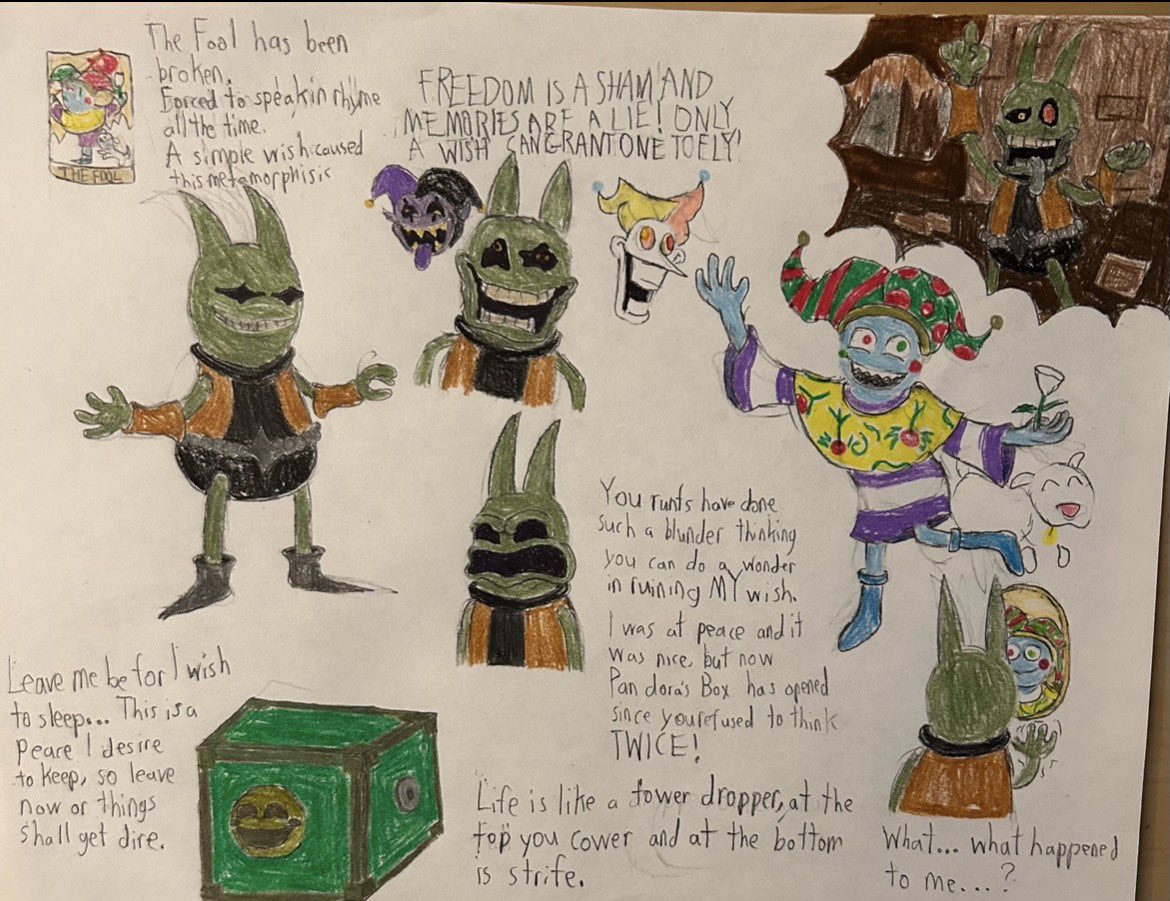 The Fool has been
broken.
Forced to speak in rhyme
all the time.
A simple wish caused
this metamorphisis
THE FOOL
FREEDOM IS A SHAM AND
MEMORIES ARE A LIE! ONLY
A WISH CAN GRANT ONE TO FLY!
You runts have done
such a blunder thinking
you can do a wonder
in ruining MY wish.
I was at peace and it
was nice, but now
Pandora's Box has opened
since you refused to think
TWICE!
Leave me be for I wish
to sleep... This is a
peace I desire
to keep, so leave
now or things
shall get dire.
Life is like a tower dropper, at the
top you cower and at the bottom
is strife.
What... what happened
to me....?